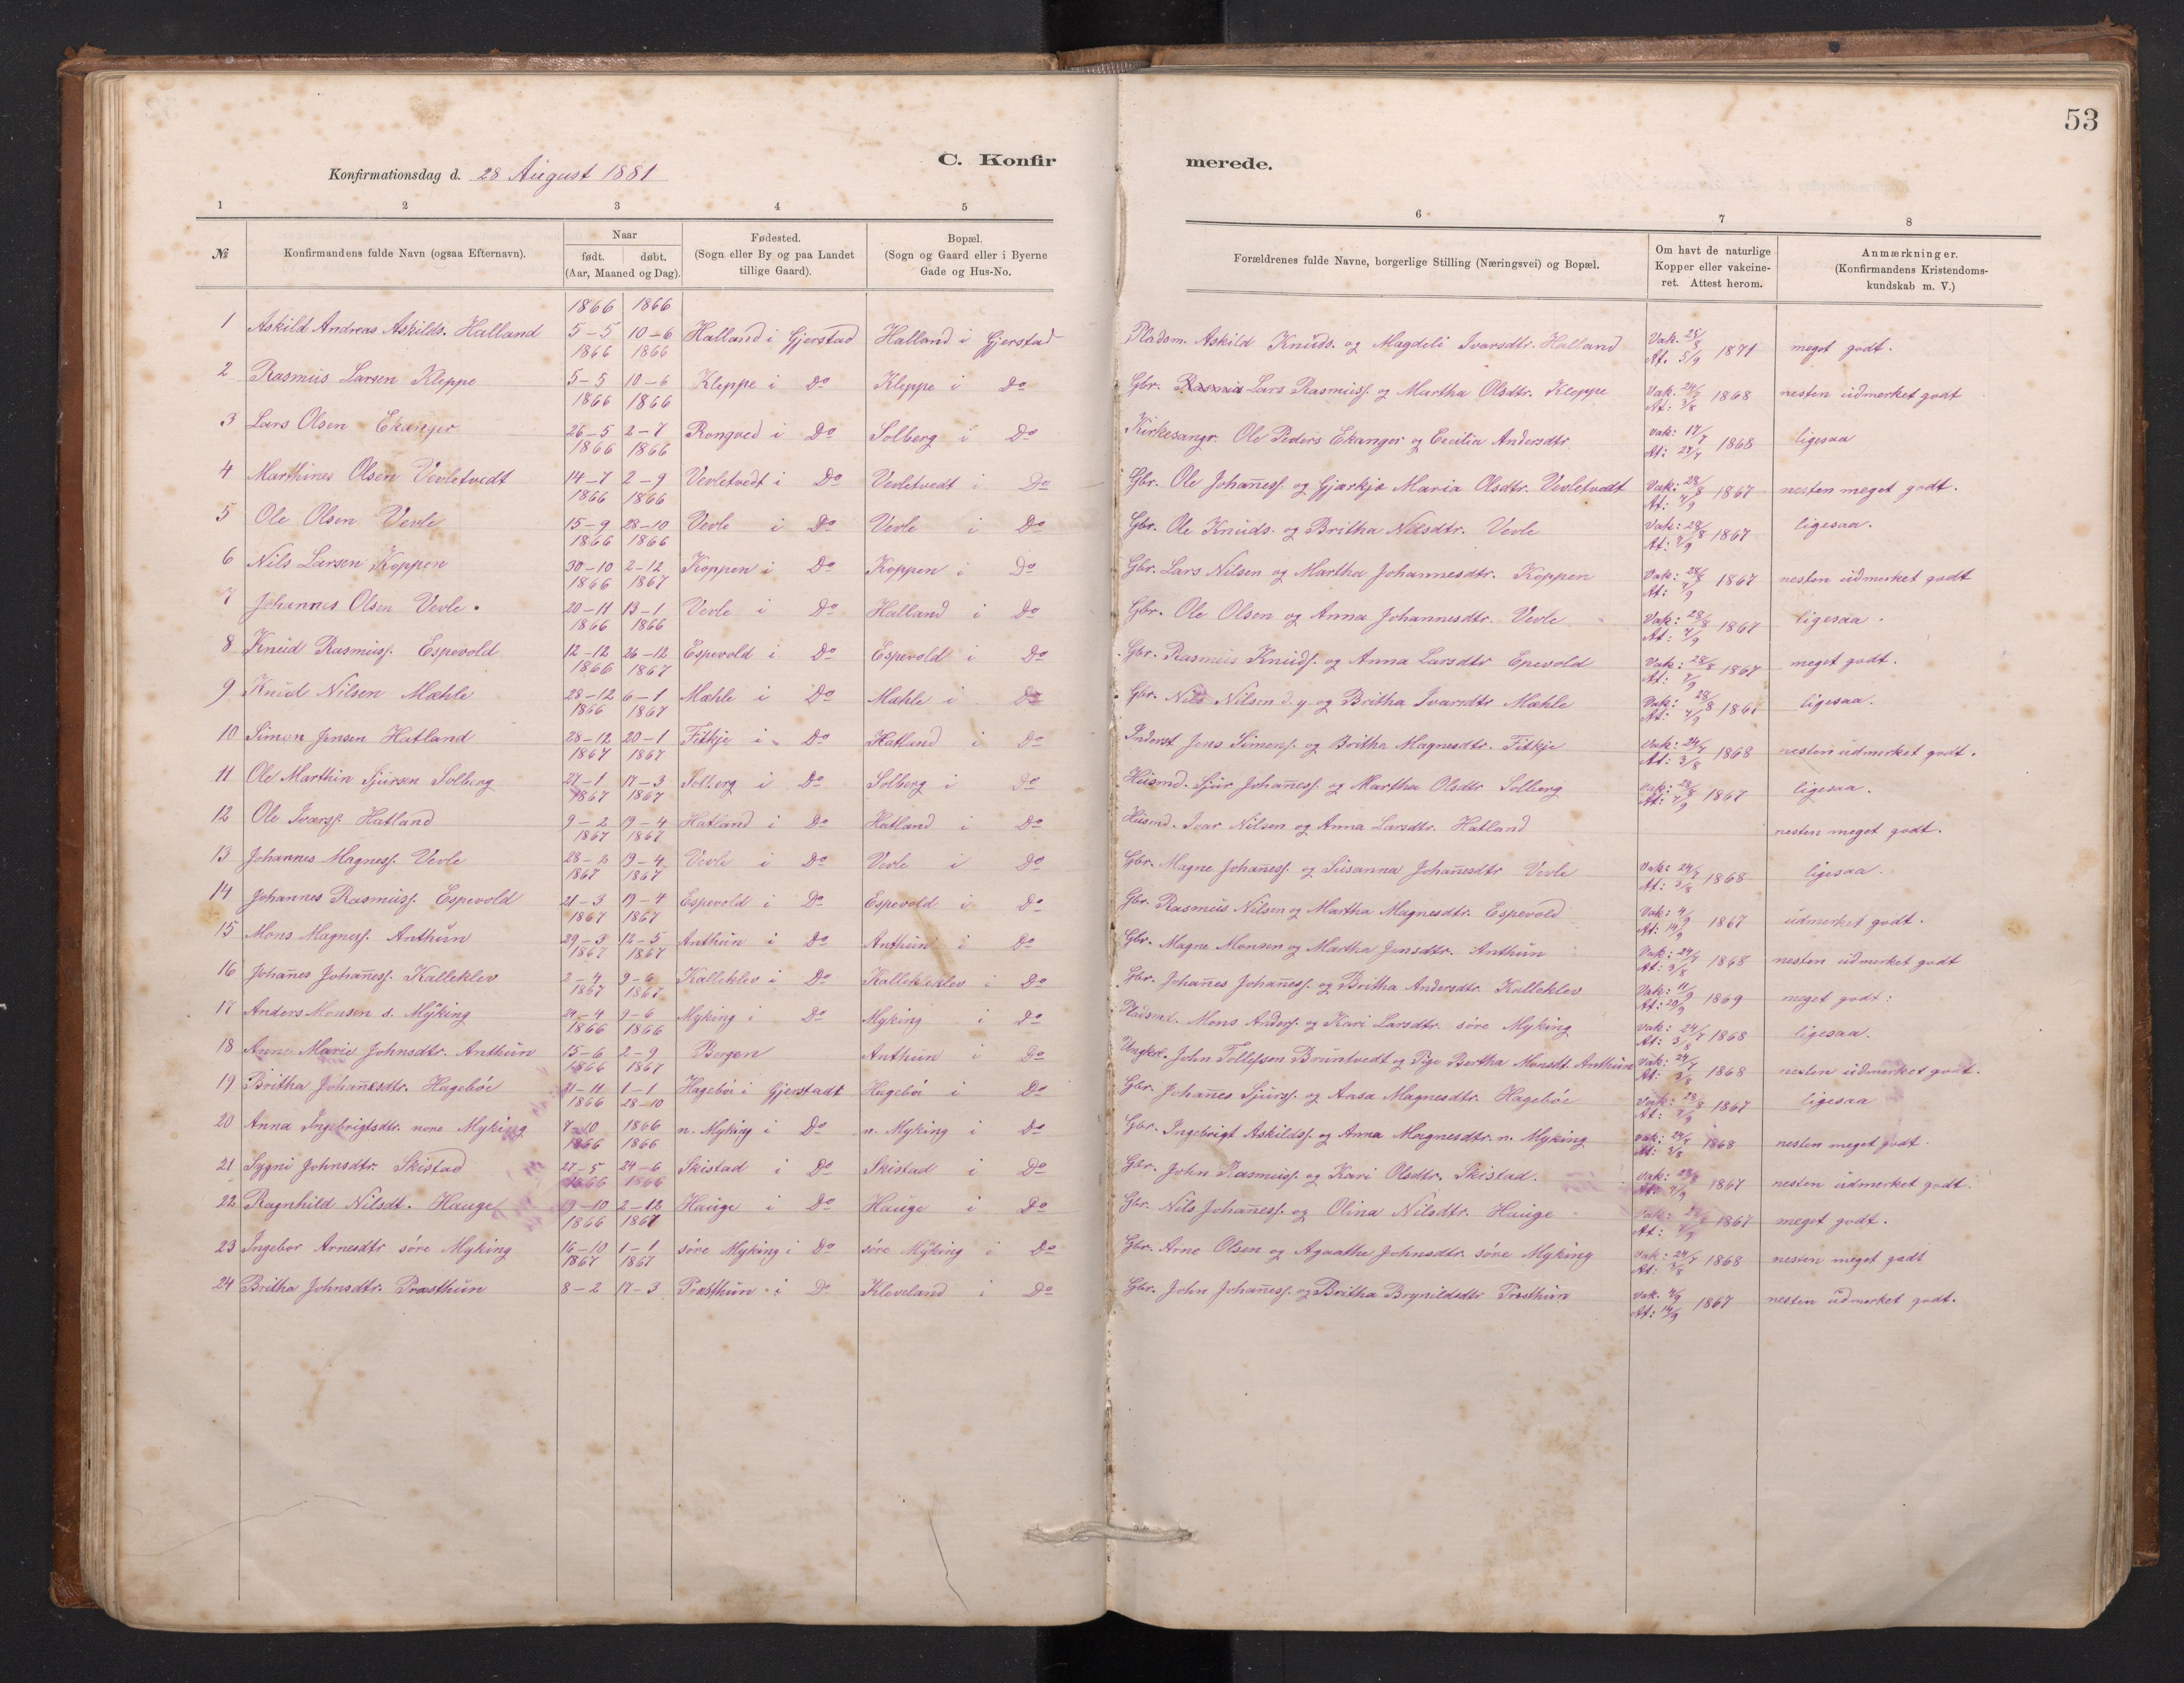 53
C. Konfirmerede.
Konfirmationsdag d. 28 August 1881
1 2 3 4 5 6 7 8
№ Konfirmandens fulde Navn (ogsaa Efternavn). Naar født. døbt. (Aar, Maaned og Dag). Fødested. (Sogn eller By og paa Landet tillige Gaard). Bopæl. (Sogn og Gaard eller i Byerne Gade og Hus-No. Forældrenes fulde Navne, borgerlige Stilling (Næringsvei) og Bopæl. Om havt de naturlige Kopper eller vakcineret. Attest herom. Anmærkninger. (Konfirmandens Kristendomskundskab m. V.)
1 Askild Andreas Askilds. Halland 1866 5-5 1866 10-6 Halland i Gjerstad Halland i Gjerstad Pladsm. Askild Knuds. og Magdeli Ivarsdtr. Halland Vak. 28/8 At. 5/9 1871 meget godt.
2 Rasmus Larsen Kleppe 1866 5-5 1866 10-6 Kleppe i Do Kleppe i Do Gbr. Lars Rasmuss. og Martha Olsdtr. Kleppe Vak. 24/7 At: 3/8 1868 nesten udmerket godt
3 Lars Olsen Ekanger 1866 26-5 1866 2-7 Rongved i Do Solberg i Do Kirkesangr. Ole Peders Ekanger og Cecilia Andersdtr. Vak: 17/7 At: 24/7 1868 ligesaa
4 Marthines Olsen Vevletvedt 1866 14-7 1866 2-9 Vevletvedt i Do Vevletvedt i Do Gbr. Ole Johan̄ess. og Gjærkje Maria Olsdtr. Vevletvedt Vak: 28/8 At: 4/9 1867 nesten meget godt.
5 Ole Olsen Vevle 1866 15-9 1866 28-10 Vevle i Do Vevle i Do Gbr. Ole Knuds. og Britha Nilsdtr. Vevle Vak: 28/8 At: 4/9 1867 ligesaa.
6 Nils Larsen Koppen 1866 30-10 1866 2-12 Koppen i Do Koppen i Do Gbr. Lars Nilsen og Martha Johannesdtr. Koppen Vak: 28/8 At: 4/9 1867 nesten udmerket godt
7 Johannes Olsen Vevle. 1866 20-11 1867 13-1 Vevle i Do Halland i Do Gbr. Ole Olsen og Anna Johannesdtr. Vevle Vak: 28/8 At: 4/9 1867 ligesaa.
8 Knud Rasmuss. Espevold 1866 12-12 1866 26-12 Espevold i Do Espevold i Do Gbr. Rasmus Knuds. og Anna Larsdtr Epevold Vak: 28/8 At: 4/9 1867 meget godt.
9 Knud Nilsen Mæhle 1866 28-12 1867 6-1 Mæhle i Do Mæhle i Do Gbr. Nils Nilsen d. y. og Britha Ivarsdtr Mæhle Vak: 28/8 At: 4/9 1867 ligesaa.
10 Simon Jensen Hatland 1866 28-12 1867 20-1 Fitkje i Do Hatland i Do Inderst Jens Simens. og Britha Magnesdtr. Fitkje Vak: 24/7 At: 3/8 1868 nesten udmerket godt.
11 Ole Marthin Sjursen Solberg 1867 27-1 1867 17-3 Solberg i Do Solberg i Do Husmd. Sjur Johan̄ess. og Martha Olsdtr Solberg Vak: 28/8 At: 4/9 1867 ligesaa.
12 Ole Ivarss. Hatland 1867 9-2 1867 19-4 Hatland i Do Hatland i Do Husmd. Ivar Nilsen og Anna Larsdtr. Hatland nesten meget godt.
13 Johannes Magness. Vevle 1867 28-2 1867 19-4 Vevle i Do Vevle i Do Gbr. Magne Johan̄ess. og Susanna Johan̄esdtr Vevle Vak: 24/7 At: 3/8 1868 ligesaa.
14 Johannes Rasmuss. Espevold 1867 21-3 1867 19-4 Espevold i Do Espevold i Do Gbr. Rasmus Nilsen og Martha Magnesdtr. Espevold Vak: 4/9 At: 14/9 1867 udmerket godt.
15 Mons Magness. Anthun 1867 29-3 1867 12-5 Anthun i Do Anthun i Do Gbr. Magne Monsen og Martha Jensdtr. Anthun Vak: 24/7 At: 3/8 1868 nesten udmerket godt
16 Johan̄es Johan̄ess. Kalleklev 1867 2-4 1867 9-6 Kalleklev i Do Kalleklev i Do Gbr. Johan̄es Johan̄ess. og Britha Andersdtr. Kalleklev Vak: 11/9 At: 20/9 1869 meget godt:
17 Anders Monsen s. Myking 1867 24-4 1867 9-6 Myking i Do Myking i Do Pladsmd. Mons Anders. og Kari Larsdtr. søre Myking Vak: 24/7 At: 3/8 1868 ligesaa.
18 Anne Marie Johnsdtr. Anthun 1866 15-6 1866 2-9 Bergen Anthun i Do Ungkr. John Tollefsen Bruntvedt og Pige Bertha Monsdt. Anthun Vak: 24/7 At: 3/8 1868 nesten udmerket godt.
19 Britha Johan̄esdtr. Hagebøe 1866 21-11 1867 1-1 Hagebøe i Gjerstadt Hagebøe i Do Gbr. Johan̄es Sjurss. og Aasa Magnesdtr. Hagebøe Vak: 28/8 At: 4/9 1867 ligesaa
20 Anna Ingebrigtsdtr. nore Myking 1866 7-10 28-10 1866 n. Myking i Do n. Myking i Do Gbr. Ingebrigt Askildss. og Anna Magnesdtr. n. Myking Vak: 24/7 At: 3/8 1868 nesten meget godt.
21 Sygni Johnsdtr. Skistad 1866 27-5 1866 24-6 Skistad i Do Skistad i Do Gbr. John Rasmuss. og Kari Olsdtr. Skistad. Vak: 28/8 At: 4/9 1867 nesten udmerket godt.
22 Ragnhild Nilsdt. Hauge 1866 19-10 1866 2-12 Hauge i Do Hauge i Do Gbr. Nils Johan̄ess. og Olina Nilsdtr. Hauge 1867 meget godt.
23 Ingebor Arnesdtr søre Myking 1866 16-10 1867 1-1 søre Myking i Do søre Myking i Do Gbr. Arne Olsen og Agaathe Johnsdtr. søre Myking Vak: 24/7 At: 3/8 1868 nesten meget godt
24 Britha Johnsdtr. Præsthun 1867 8-2 1867 17-3 Præsthun i Do Kleveland i Do Gbr. John Johan̄ess. og Britha Brynildsdtr Præsthun Vak. 4/9 At: 14/9 1867 nesten udmerket godt.